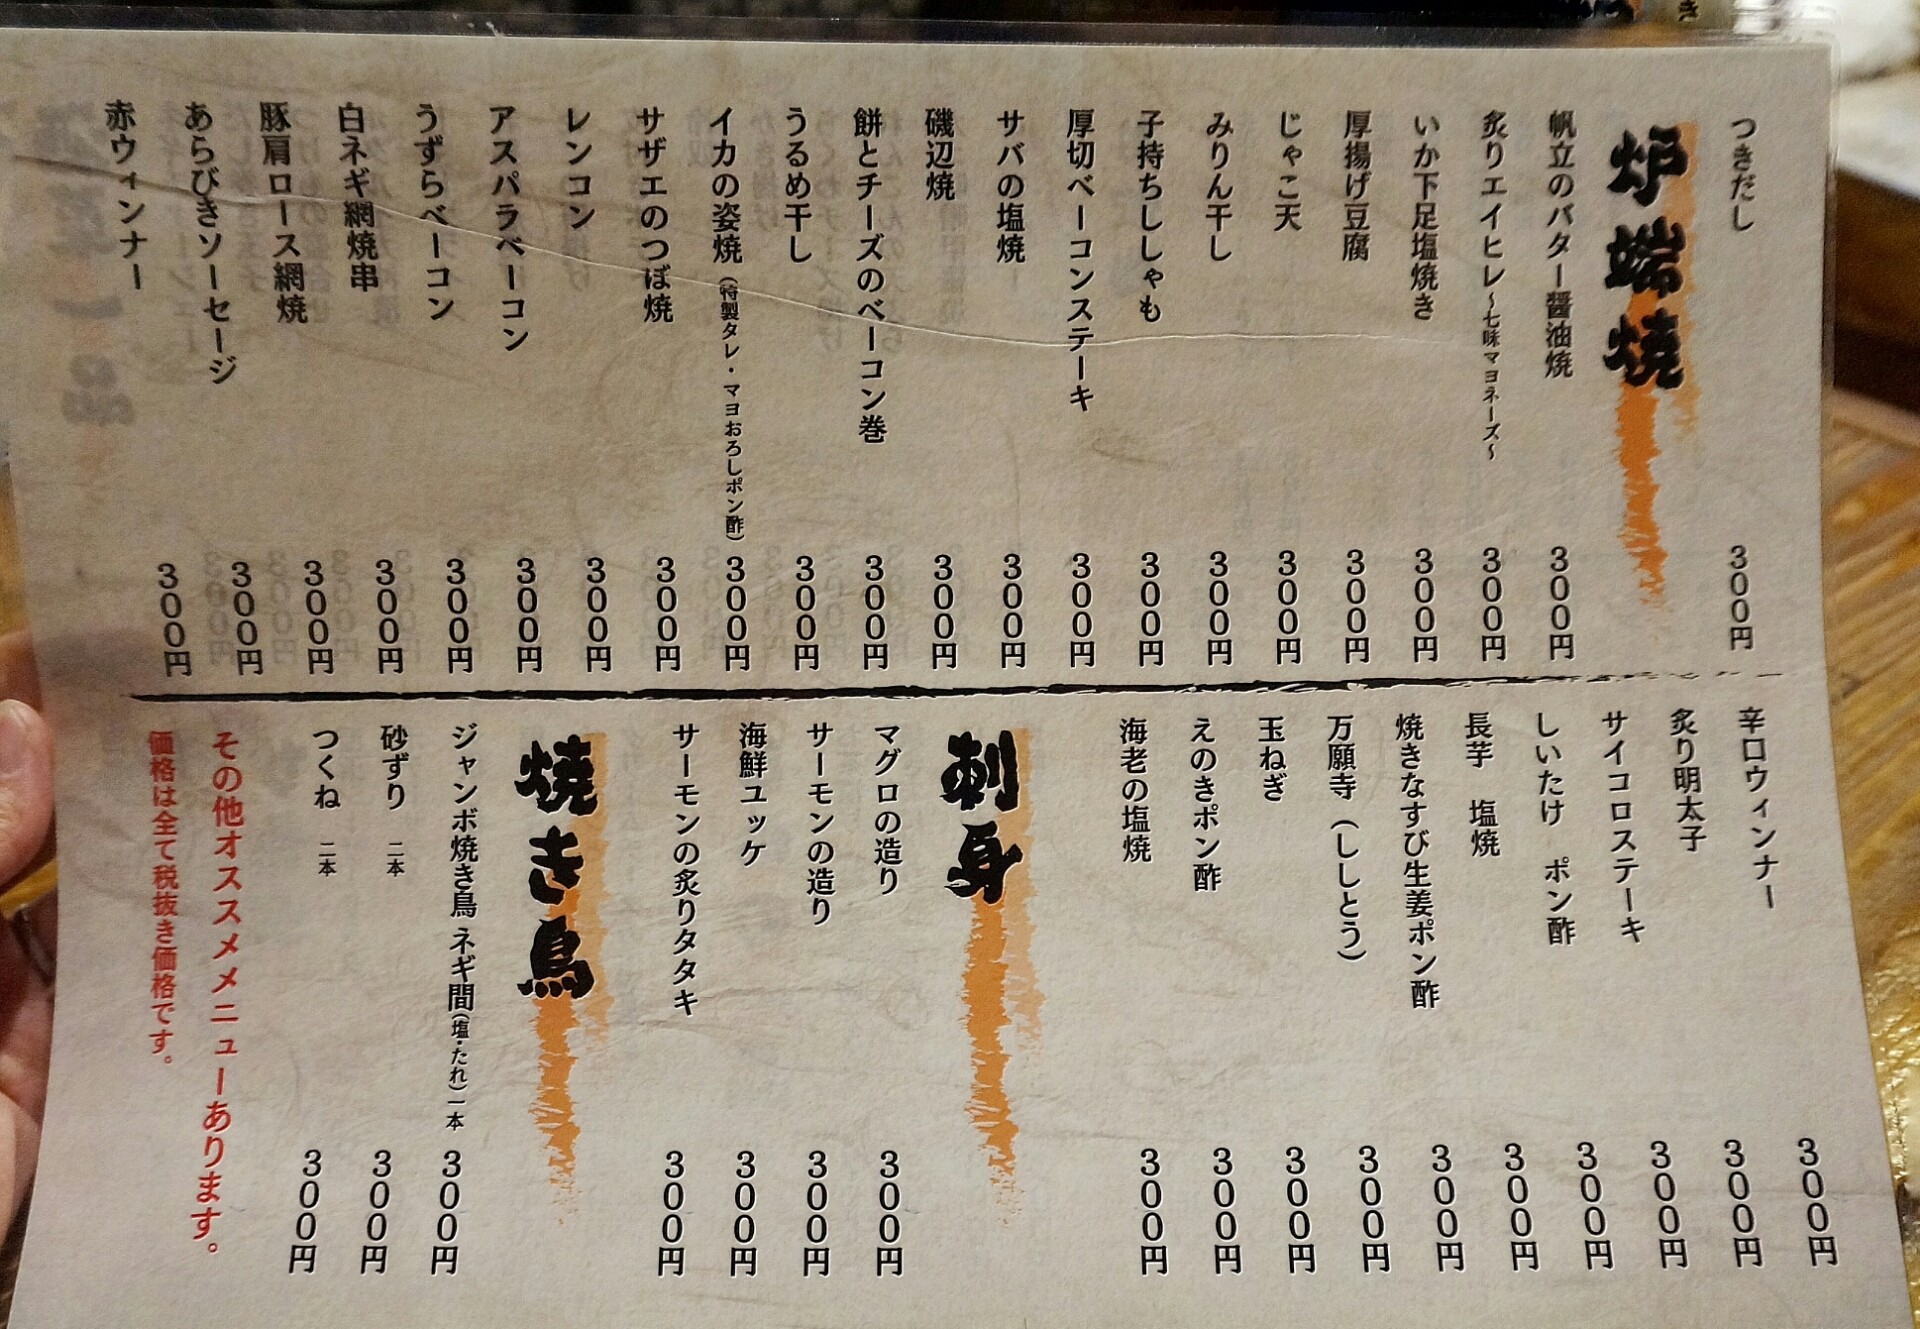 つきだし 300円
炉端焼
帆立のバター醤油焼 300円
炙りエイヒレ～七味マヨネーズ～ 300円
いか下足塩焼き 300円
厚揚げ豆腐 300円
じゃこ天 300円
みりん干し 300円
子持ちししゃも 300円
厚切ベーコンステーキ 300円
サバの塩焼 300円
磯辺焼 300円
餅とチーズのベーコン巻 300円
うるめ干し 300円
イカの姿焼（特製タレ・マヨおろしポン酢） 300円
サザエのつぼ焼 300円
レンコン 300円
アスパラベーコン 300円
うずらベーコン 300円
白ネギ網焼串 300円
豚肩ロース網焼 300円
あらびきソーセージ 300円
赤ウィンナー 300円
辛口ウィンナー 300円
炙り明太子 300円
サイコロステーキ 300円
しいたけ ポン酢 300円
長芋 塩焼 300円
焼きなすび生姜ポン酢 300円
万願寺（ししとう） 300円
玉ねぎ 300円
えのきポン酢 300円
海老の塩焼 300円
刺身
マグロの造り 300円
サーモンの造り 300円
海鮮ユッケ 300円
サーモンの炙りタタキ 300円
焼き鳥
ジャンボ焼き鳥 ネギ間（塩・たれ）一本 300円
砂ずり 二本 300円
つくね 二本 300円
その他オススメメニューあります。
価格は全て税抜き価格です。